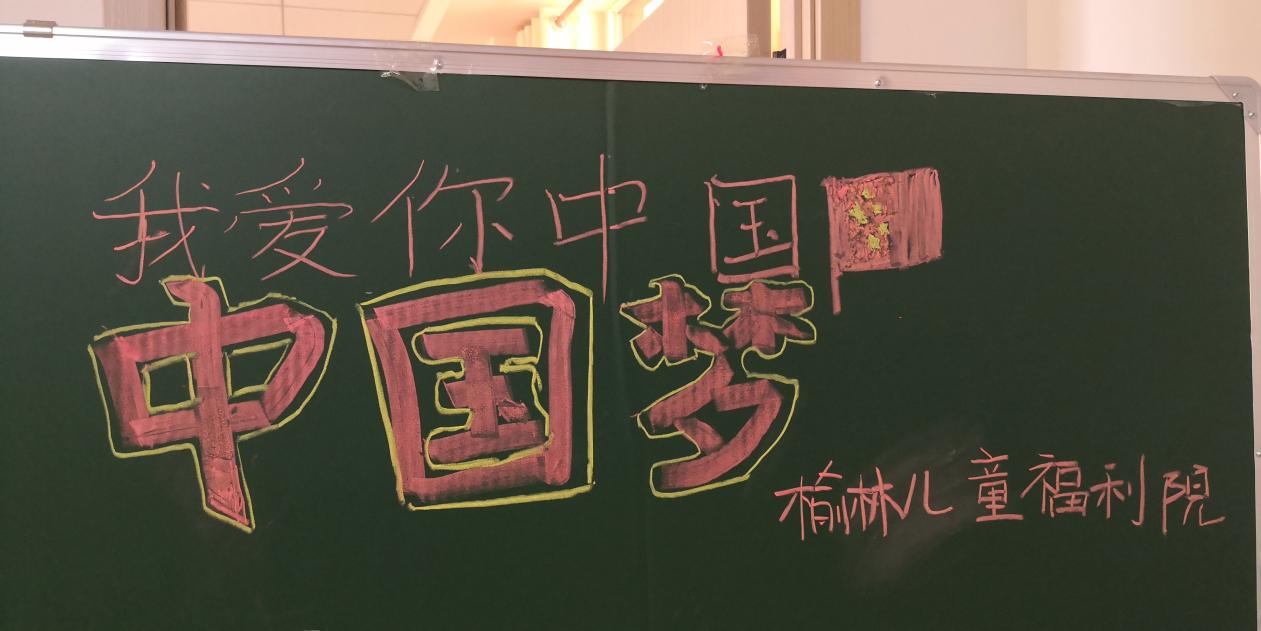 我爱你中国
中国梦
榆林儿童福利院